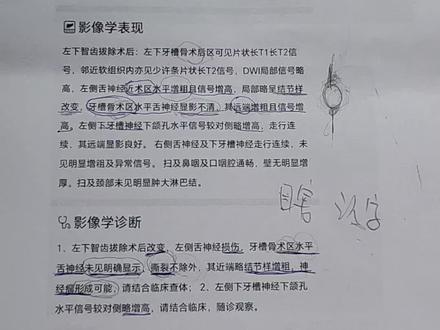 影像学表现
左下智齿拔除术后：左下牙槽骨术后区可见片状长T1长T2信
号，邻近软组织内亦见少许条片状长T2信号，DWI局部信号略
高，左侧舌神经近术区水平增粗且信号增高，局部略呈结节样
改变，牙槽骨术区水平舌神经显影不清，其远端增粗且信号增
高。左侧下牙槽神经下颌孔水平信号较对侧略增高，走行连
续，其远端显影良好。右侧舌神经及下牙槽神经走行连续，未
见明显增粗及异常信号。扫及鼻咽及口咽腔通畅，壁无明显增
厚。扫及颈部未见明显肿大淋巴结。
影像学诊断
1、左下智齿拔除术后改变，左侧舌神经损伤，牙槽骨术区水平
舌神经未见明确显示，撕裂不除外，其近端略结节样增粗，神
经瘤形成可能，请结合临床查体；2、左侧下牙槽神经下颌孔
水平信号较对侧略增高，请结合临床，随诊观察。